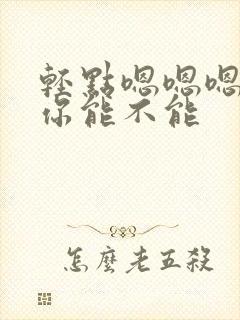 輕點嗯嗯嗯
你能不能
怎麼老五殺